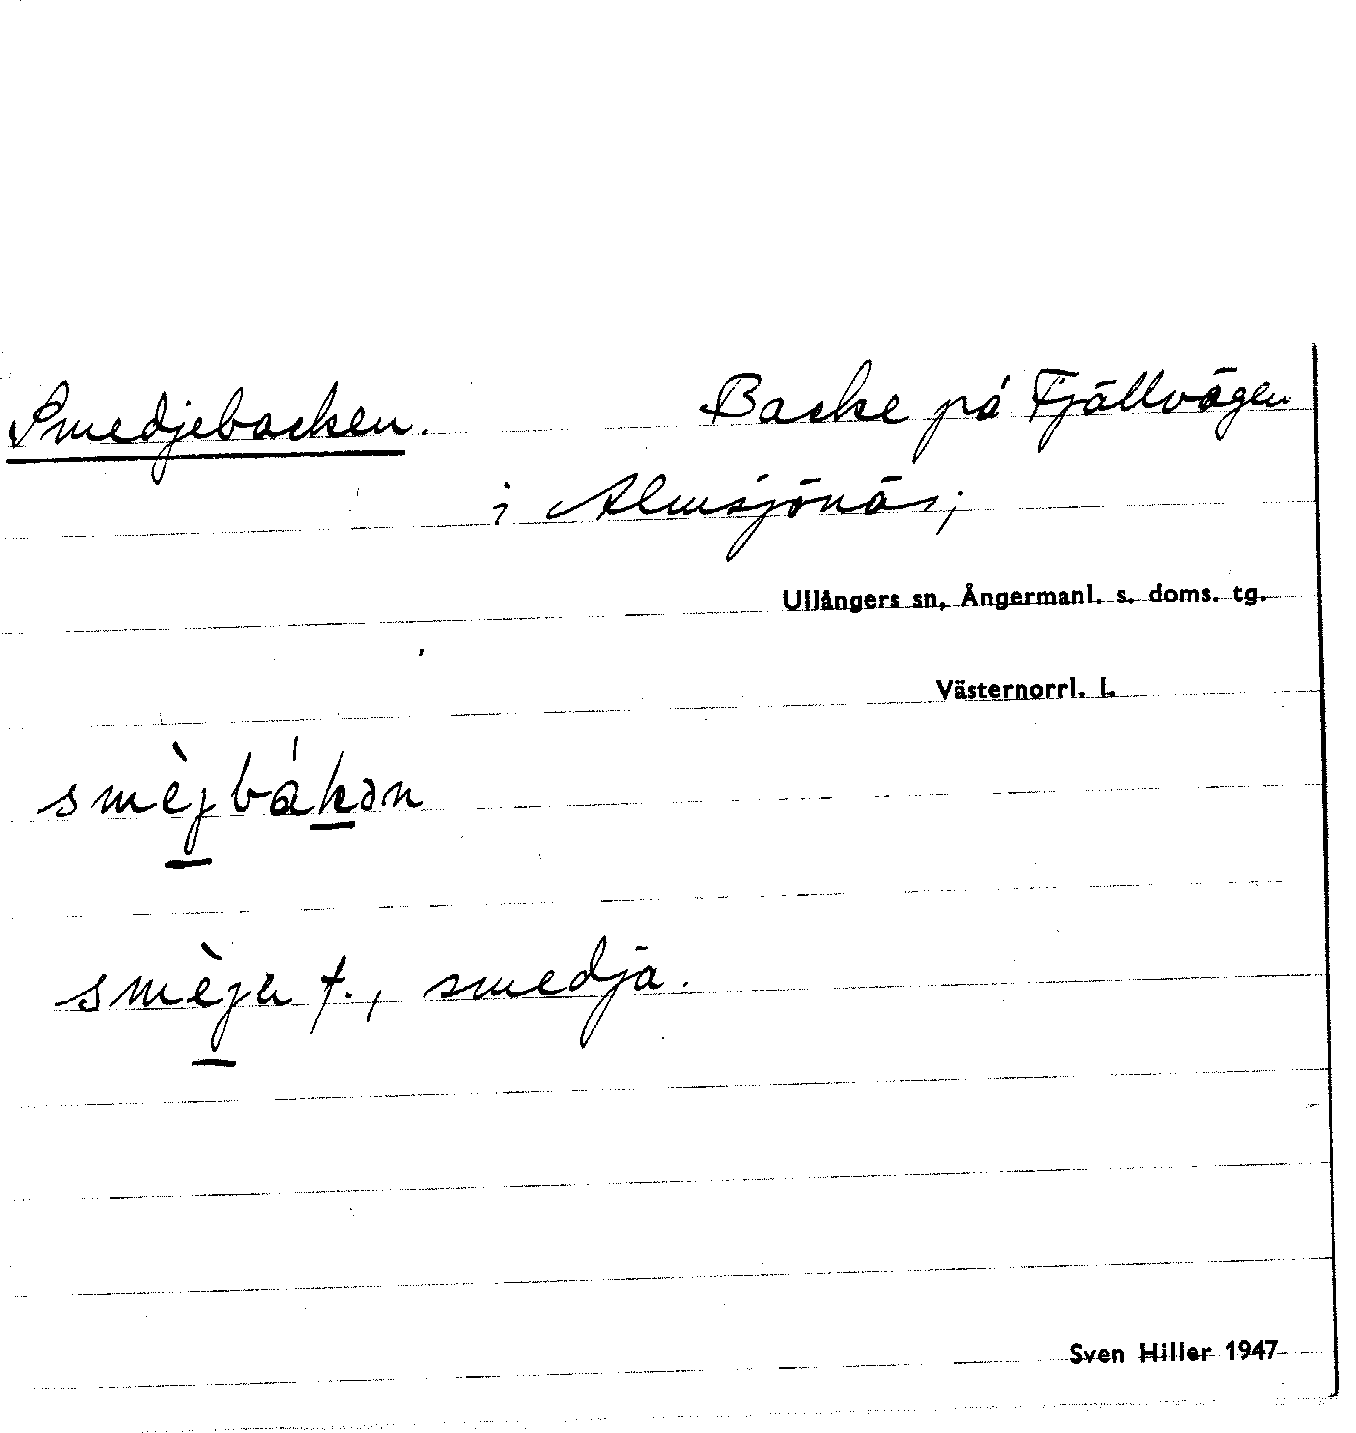 Smedjebacken. Backe på Fjällvägen
i Almsjönäs;
Ullångers sn, Ångermanl. s. doms. tg.
Västernorrl. l.
smèjbákən
smèja f., smedja.
Sven Hiller 1947